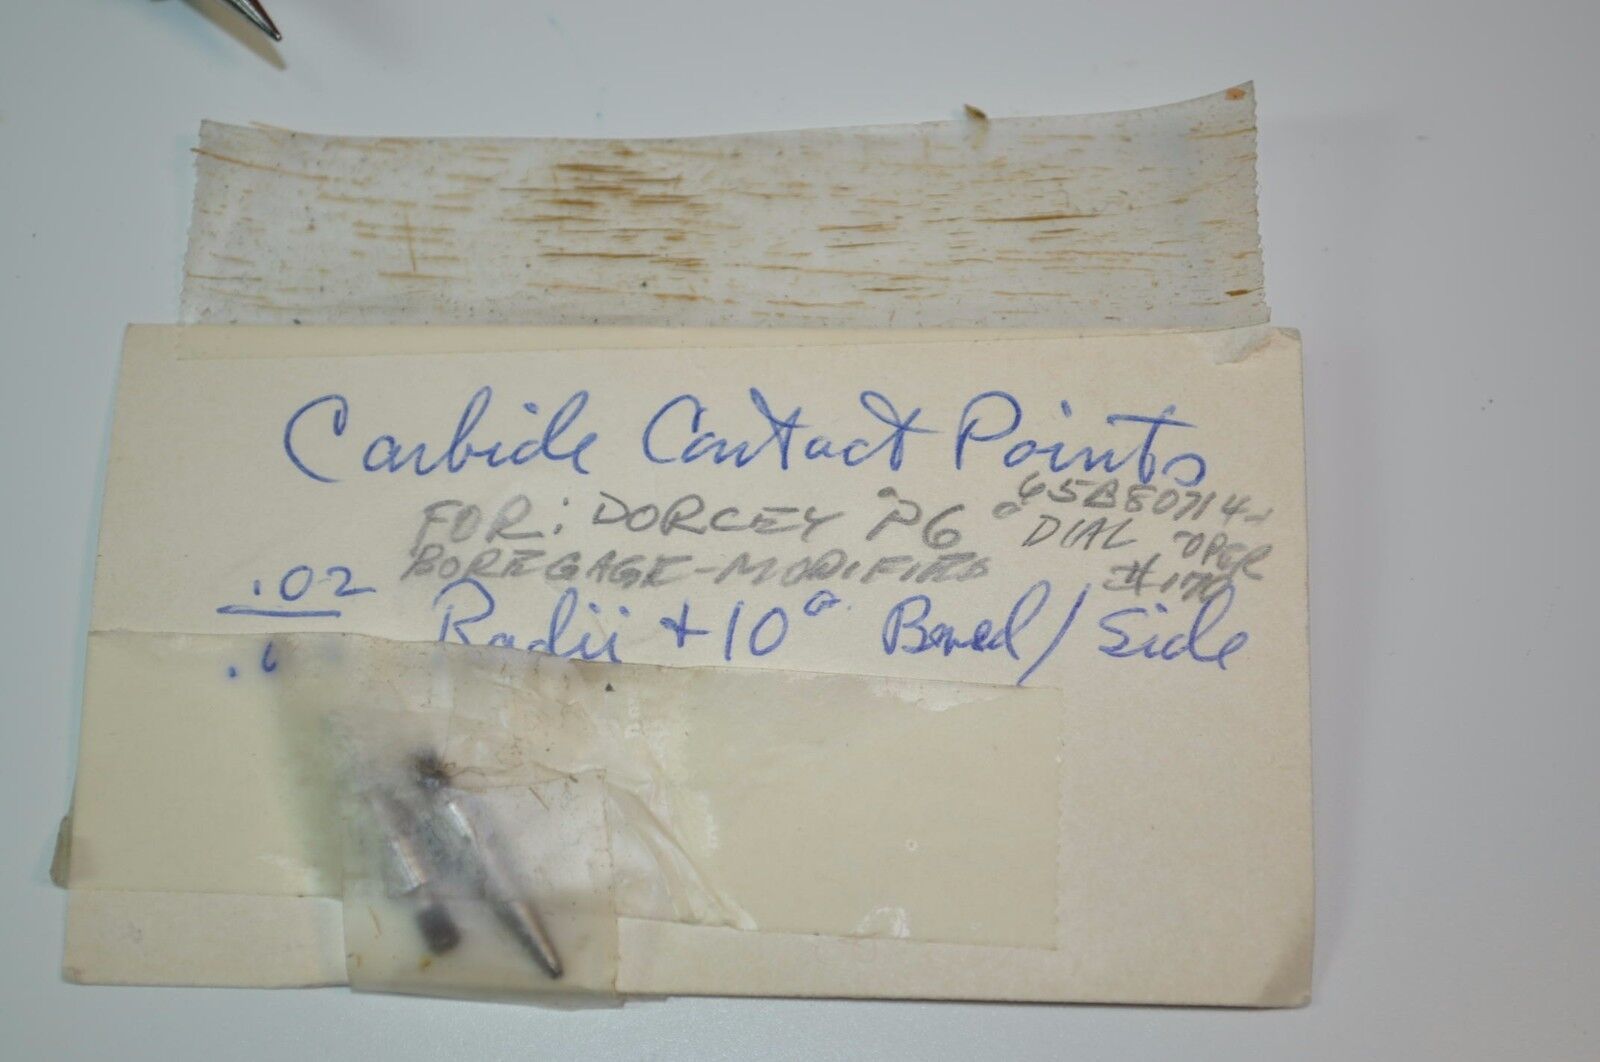 Carbide Contact Points
FOR: DORCEY P6 65B80714-1
DIAL OPER
BOREGAGE-MODIFIED #170
.02 Radii + 10° Bevel/Side